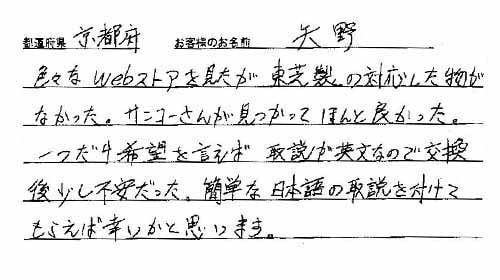 都道府県 京都府 お客様のお名前 矢野
色々なWebストアを見たが 東芝製の対応した物が
なかった。サンコーさんが見つかってほんと良かった。
一つだけ希望を言えば 取説が英文なので交換
後少し不安だった。簡単な日本語の取説を付けて
もらえば幸いかと思います。